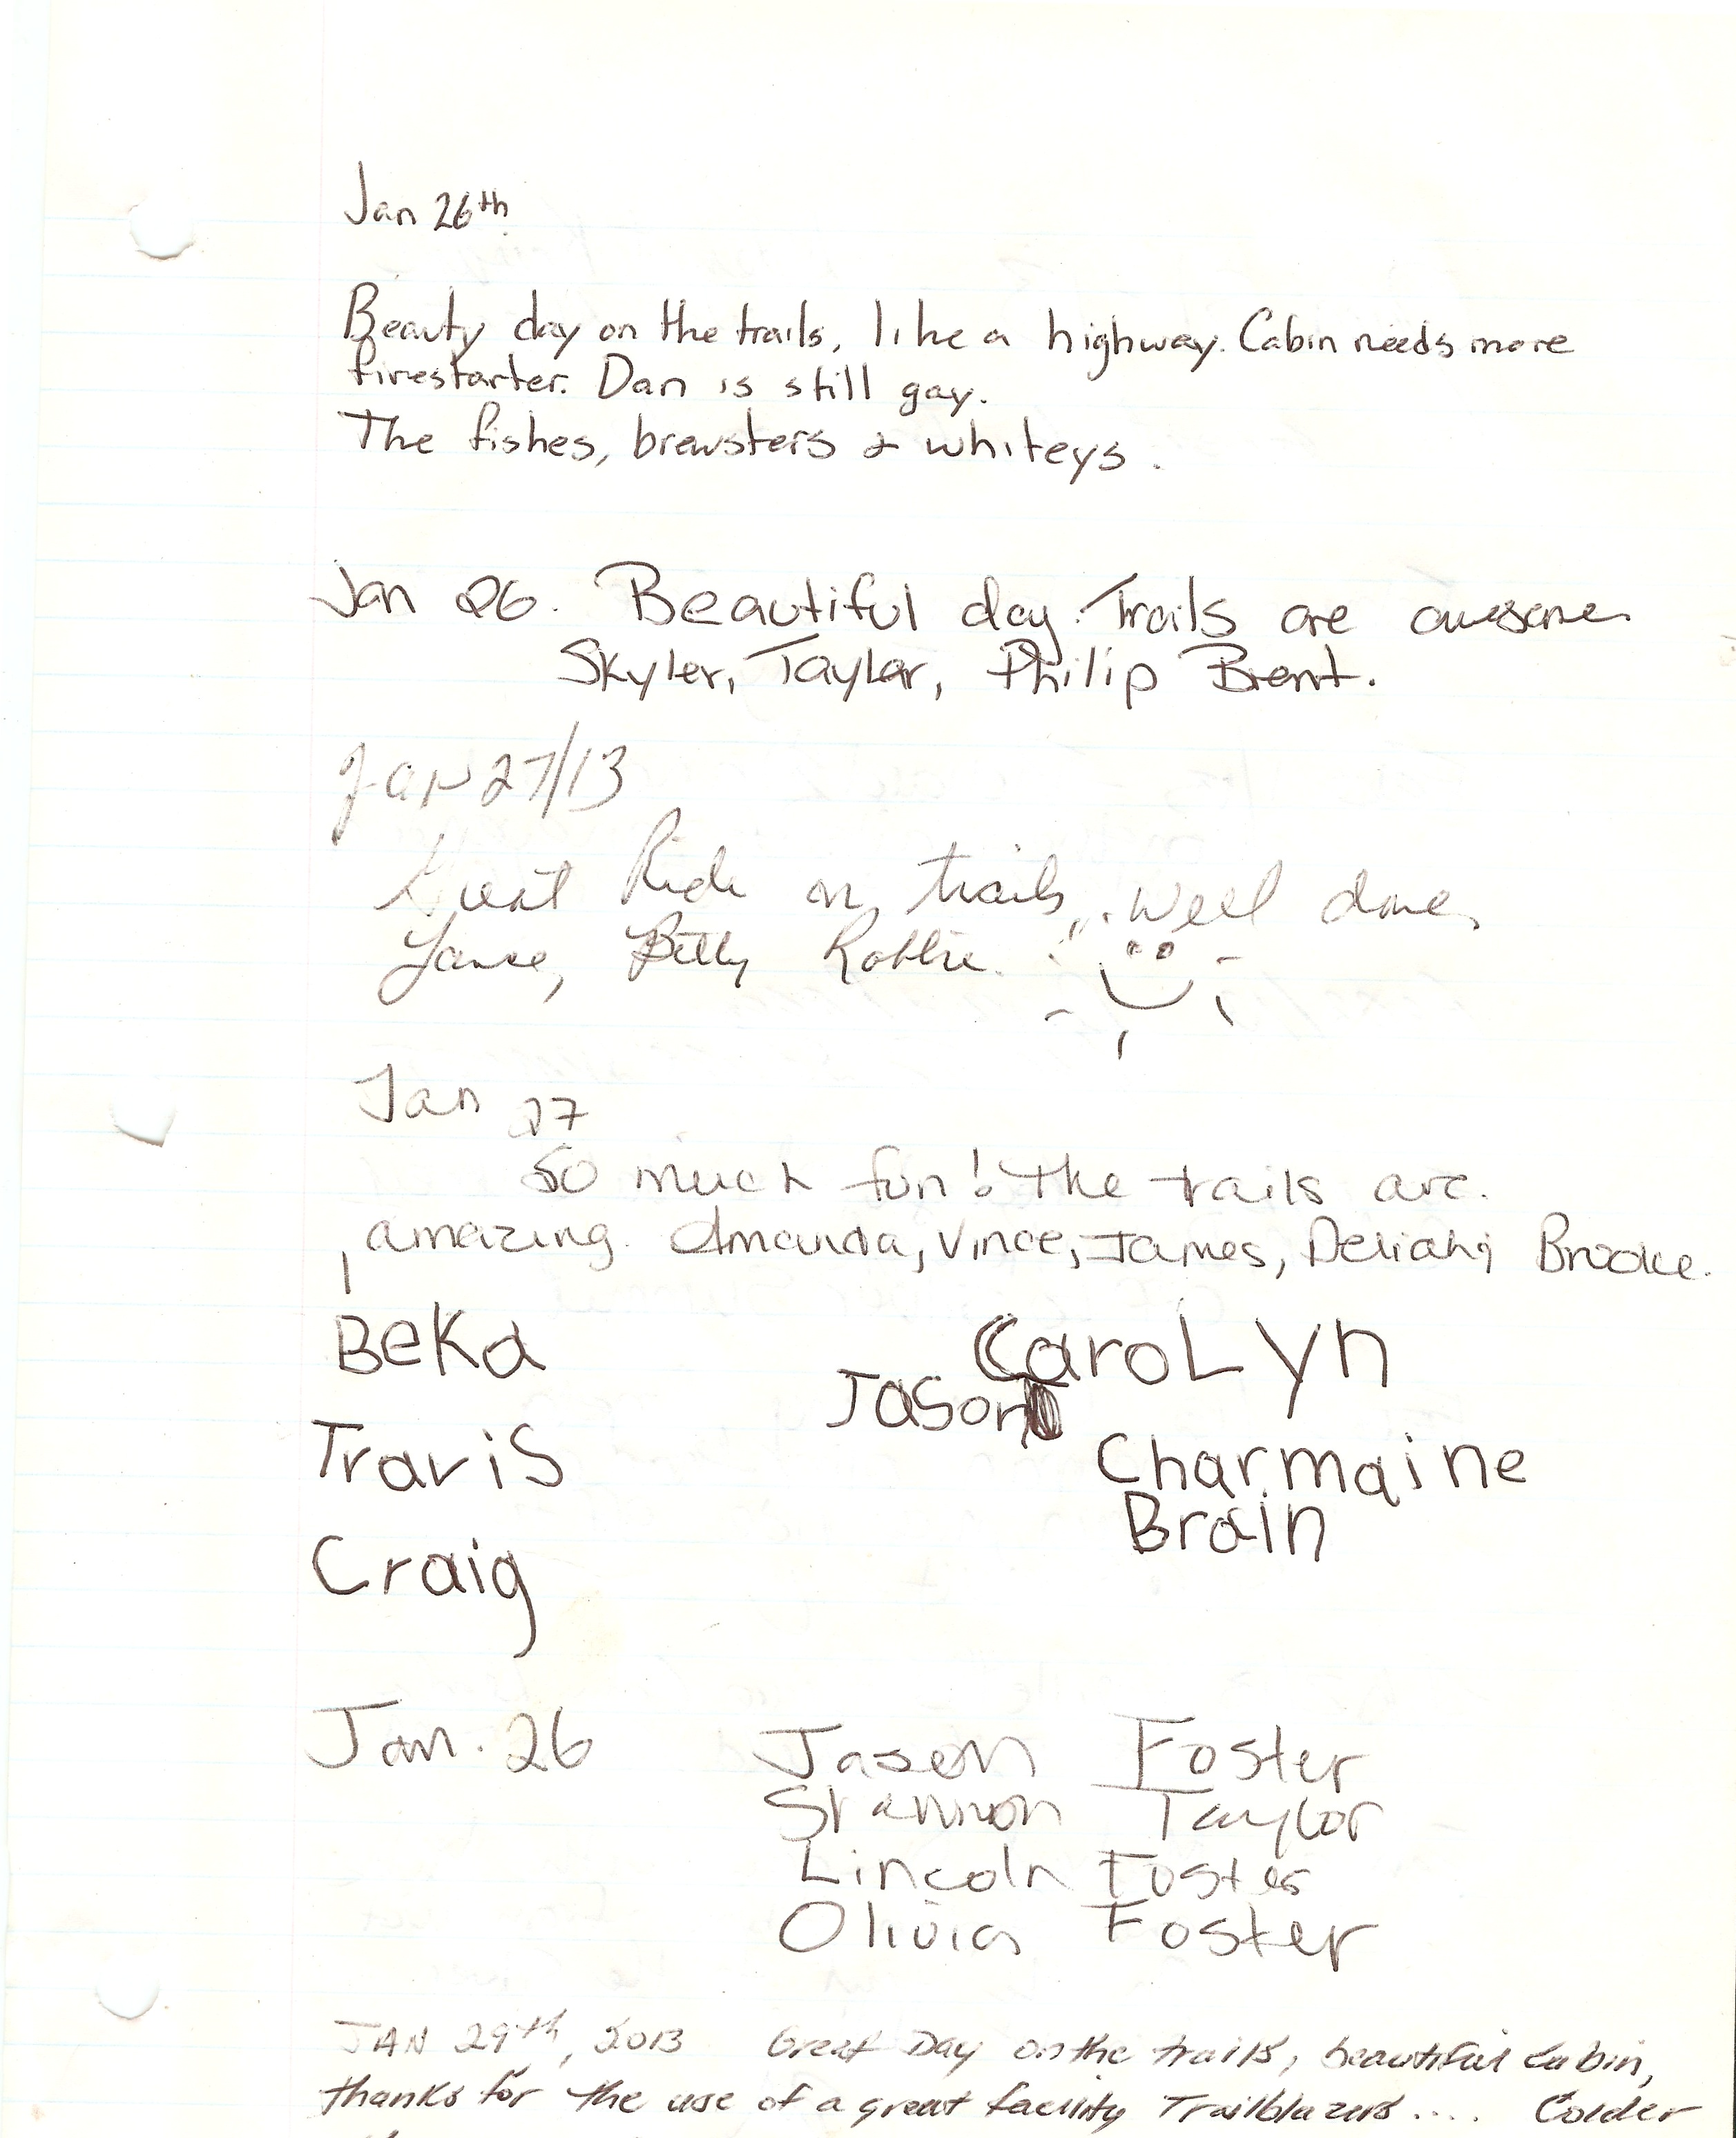 Jan 26th
Beauty day on the trails, like a highway. Cabin needs more
firestarter. Dan is still gay.
The fishes, brewsters & whiteys.
Jan 26. Beautiful day. Trails are awesome.
Skyler, Taylar, Philip Brent.
JAN 27/13
Great Ride on trails... Well done,
Billy Robbie.
Jan 27
So much fun! The trails are.
amazing. Amanda, Vince, James, Brooke.
Beka CaroLyn
Jason
Travis Charmaine
Brain
Craig
Jan. 26 Jason Foster
Shannon Taylor
Lincoln Foster
Olivia Foster
JAN 29th, 2013 Great Day on the trails, beautiful Cabin,
thanks for the use of a great facility Trailblazers.... Colder